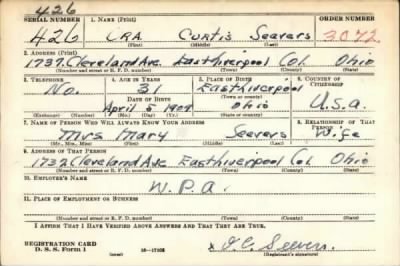 426
SERIAL NUMBER 1. NAME (Print) ORDER NUMBER
426 IRA Curtis Seevers 3072
(First) (Middle) (Last)
2. ADDRESS (Print)
1732 Cleveland Ave. East Liverpool Col. Ohio
(Number and street or R. F. D. number) (Town) (County) (State)
3. TELEPHONE 4. AGE IN YEARS 5. PLACE OF BIRTH 6. COUNTRY OF CITIZENSHIP
No. 31 East Liverpool
DATE OF BIRTH (Town or county)
April 5 1909 Ohio U.S.A.
(Mo.) (Day) (Yr.) (State or country)
7. NAME OF PERSON WHO WILL ALWAYS KNOW YOUR ADDRESS 8. RELATIONSHIP OF THAT PERSON
Mrs Mary Seevers Wife
(Mr., Mrs., Miss) (First) (Middle) (Last)
9. ADDRESS OF THAT PERSON
1732 Cleveland Ave East Liverpool Col Ohio
(Number and street or R. F. D. number) (Town) (County) (State)
10. EMPLOYER'S NAME
W.P.A.
11. PLACE OF EMPLOYMENT OR BUSINESS
(Number and street or R. F. D. number) (Town) (County) (State)
I AFFIRM THAT I HAVE VERIFIED ABOVE ANSWERS AND THAT THEY ARE TRUE.
REGISTRATION CARD
D. S. S. Form 1 (over) 16—17105 x I.C. Seevers
(Registrant's signature)